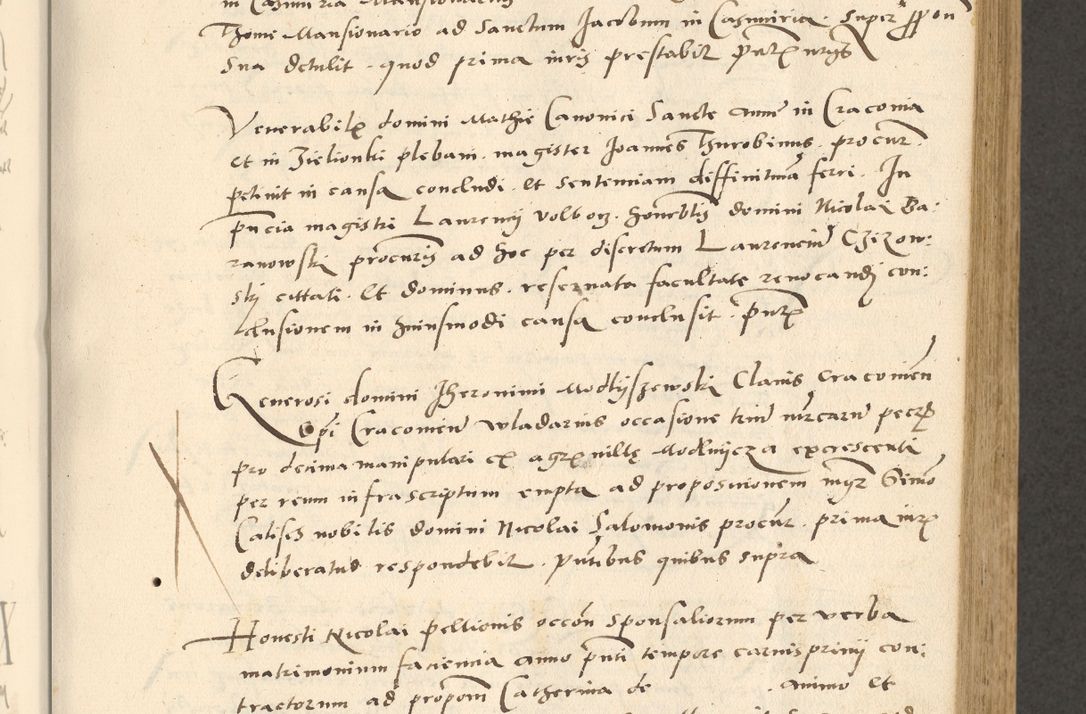 in Casimiria Mansionariis
Thome Mansionario ad Sanctum Jacobum in Casimiria. super ppon
sua detulit. quod prima iuris prestabit pntx
Venerabilis domini Mathie Canonici Sancte Anne in Cracovia
et in Zielionki plebani. magister Joannes Thurobinus. procur
petiuit in causa concludi. et sententiam diffinitivā ferri. In
pñcia magistri Laurencij domini Nicolai Ba:
ranowski procuris ad hoc per discretum Laurenciū Czizow:
skj cittati. Et dominus. reservata facultate revocandj con:
clusionem in huiusmodi causa conclusit. pntx
Generosi domini Jheronimi Modlyszewski Clavis Cracovien
Epi Cracovien wladarius occasione triū mrcarū pecx
pro decima manipulari ex agrx ville Modlnycza excrescenti
per reum infrascriptum empta ad proposicionem mgr Simo
Calisci nobilis domini Nicolai Salomonis procur. prima iurx
deliberatus respondebit. pntibus quibus supra
Honesti Nicolai Peltionis occōn sponsaliorum per verba
matrimonium faciencia anno pnti tempore carnisprivij con:
tractorum ad propom Catherina de . animo et